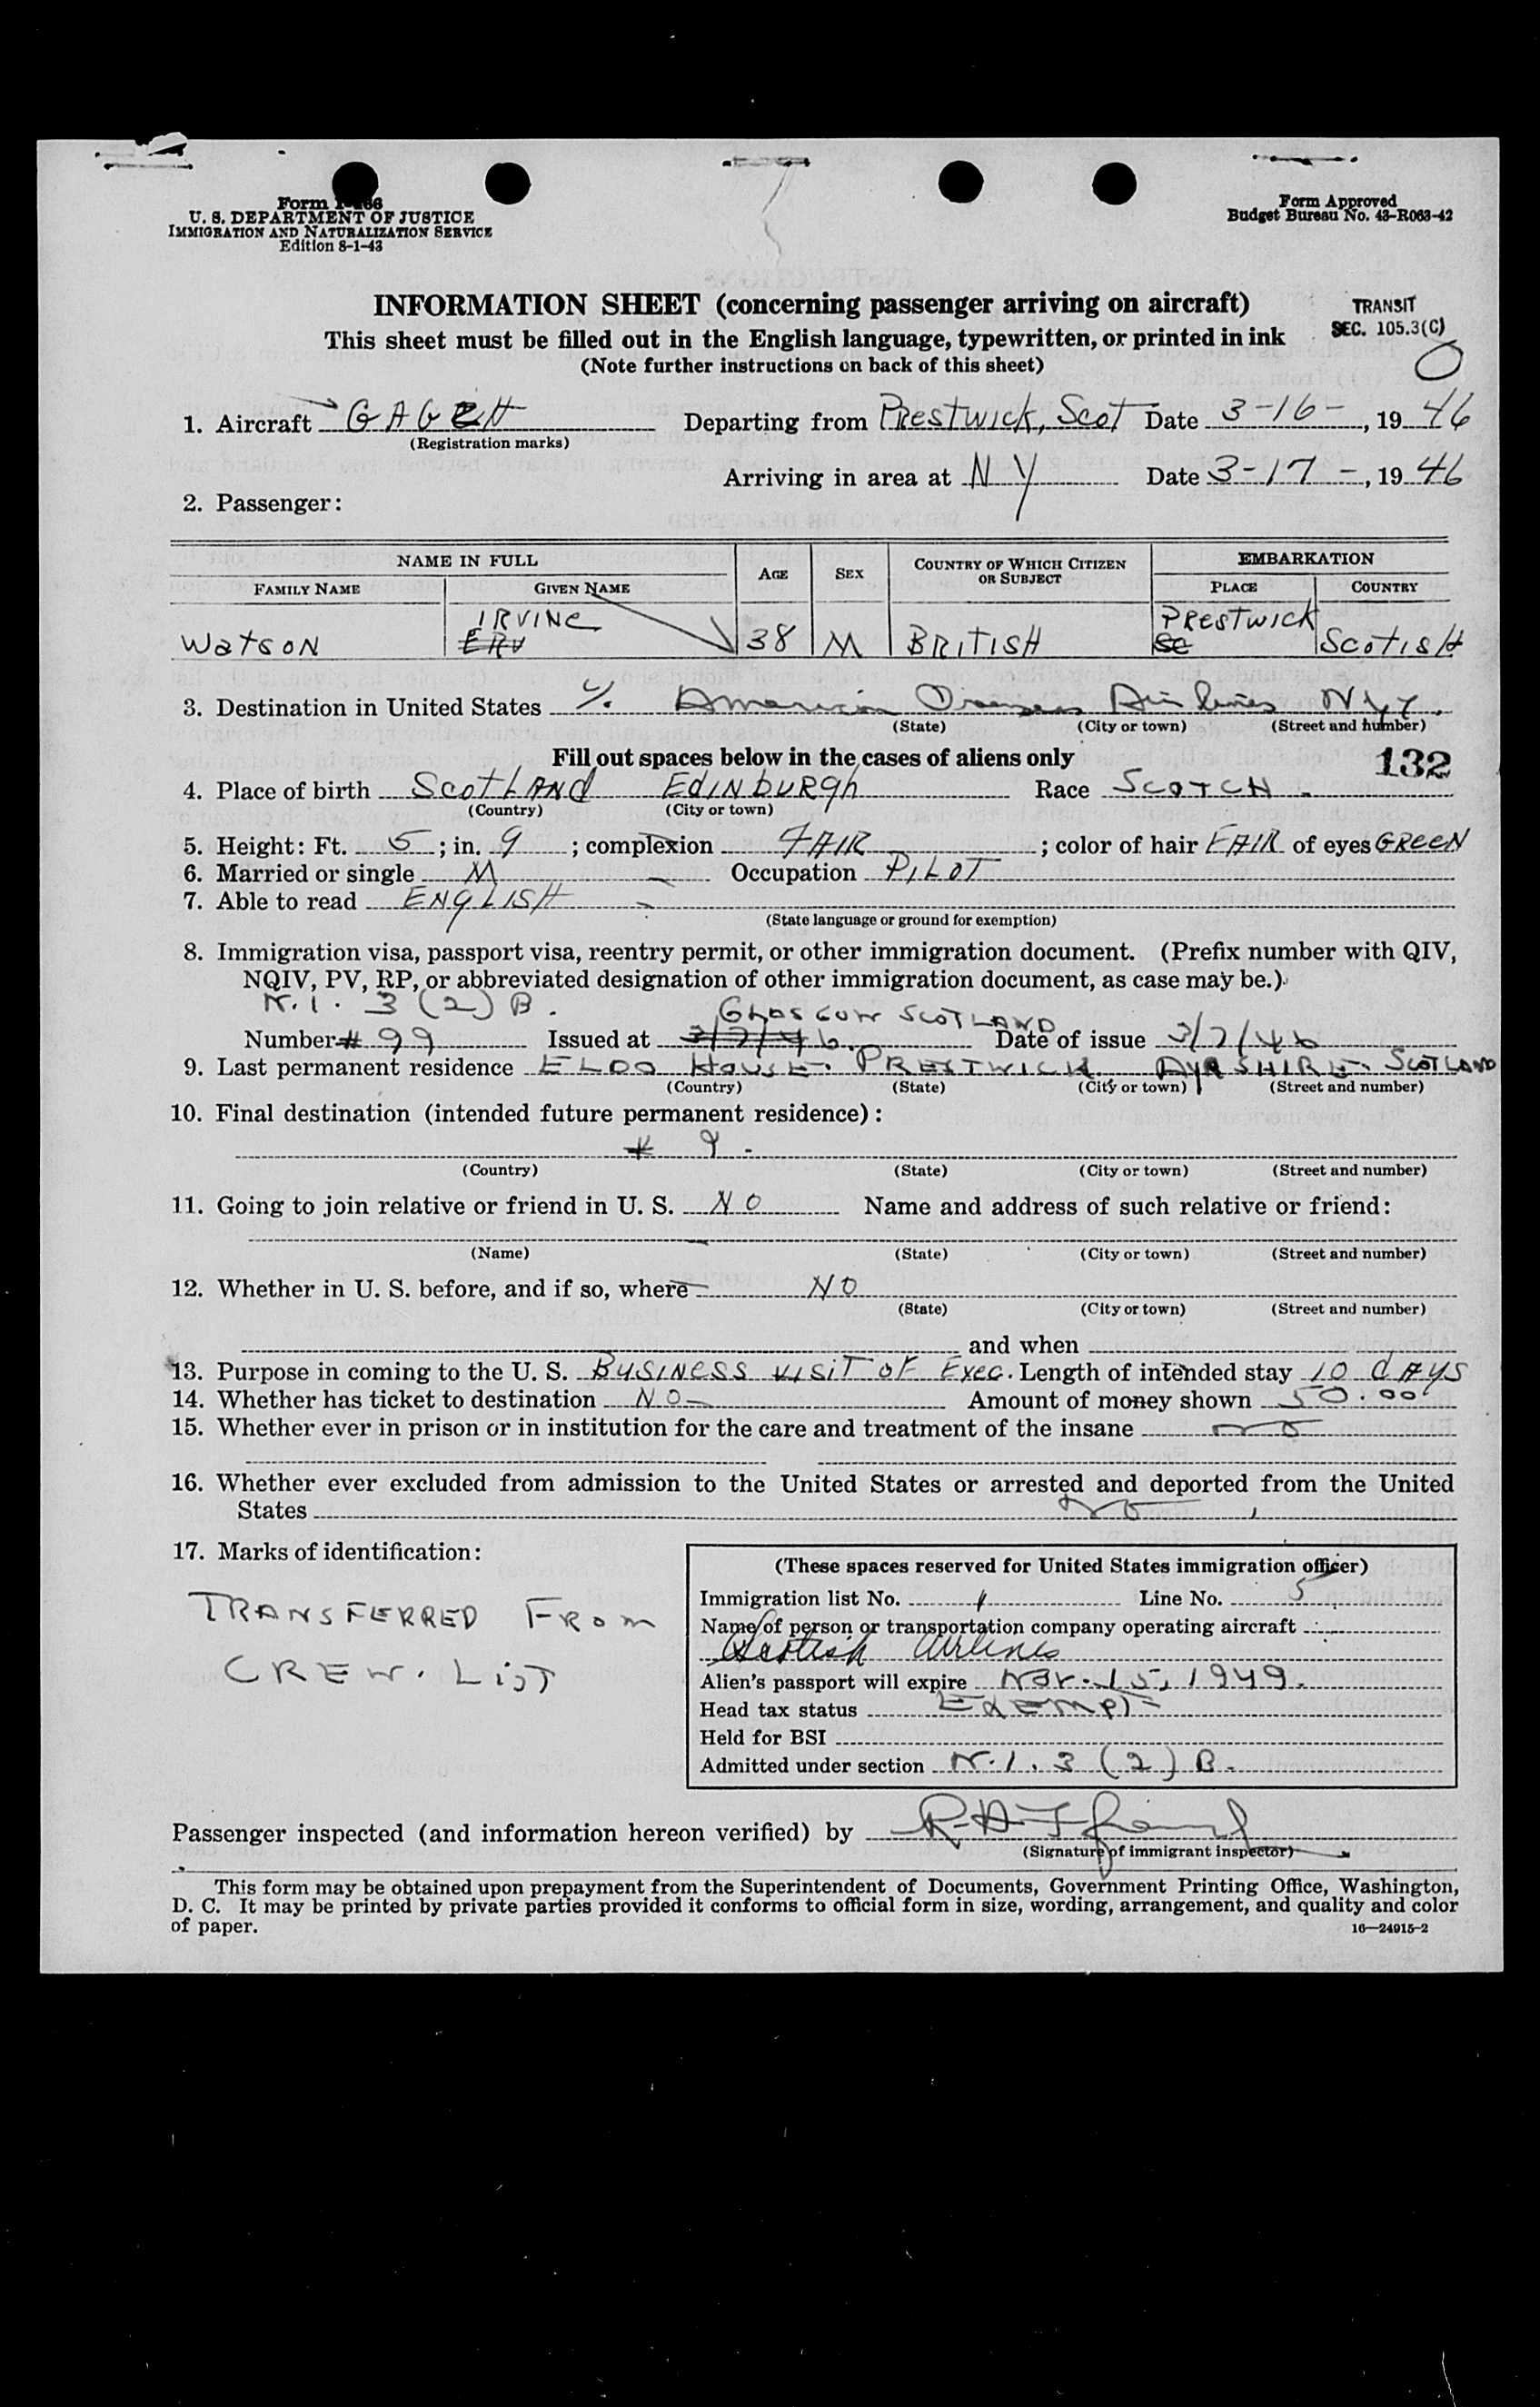 Form I-466
U. S. DEPARTMENT OF JUSTICE
IMMIGRATION AND NATURALIZATION SERVICE
Edition 8-1-43
Form Approved
Budget Bureau No. 43-R063-42
INFORMATION SHEET (concerning passenger arriving on aircraft)
TRANSIT
This sheet must be filled out in the English language, typewritten, or printed in ink
SEC. 105.3(C)
(Note further instructions on back of this sheet)
O
1. Aircraft GAGEH Departing from Prestwick, Scot Date 3-16-, 1946
(Registration marks)
Arriving in area at NY Date 3-17-, 1946
2. Passenger:
NAME IN FULL AGE SEX COUNTRY OF WHICH CITIZEN OR SUBJECT EMBARKATION
FAMILY NAME GIVEN NAME PLACE COUNTRY
IRVINE PRESTWICK
WATSON ERV 38 M BRITISH SC SCOTISH
3. Destination in United States c/o American Overseas Airlines NYC.
(State) (City or town) (Street and number)
Fill out spaces below in the cases of aliens only 132
4. Place of birth SCOTLAND EDINBURGH Race SCOTCH.
(Country) (City or town)
5. Height: Ft. 5; in. 9; complexion FAIR; color of hair FAIR of eyes GREEN
6. Married or single M Occupation PILOT
7. Able to read ENGLISH
(State language or ground for exemption)
8. Immigration visa, passport visa, reentry permit, or other immigration document. (Prefix number with QIV,
NQIV, PV, RP, or abbreviated designation of other immigration document, as case may be.)
N.I. 3 (2) B. GLASGOW SCOTLAND
Number # 99 Issued at 3/7/46. Date of issue 3/7/46
9. Last permanent residence HOUSE. PRESTWICK AYRSHIRE. SCOTLAND
(Country) (State) (City or town) (Street and number)
10. Final destination (intended future permanent residence):
# 9.
(Country) (State) (City or town) (Street and number)
11. Going to join relative or friend in U. S. NO Name and address of such relative or friend:
(Name) (State) (City or town) (Street and number)
12. Whether in U. S. before, and if so, where NO
(State) (City or town) (Street and number)
and when
13. Purpose in coming to the U. S. BUSINESS VISIT OF EXEC. Length of intended stay 10 DAYS
14. Whether has ticket to destination NO Amount of money shown 50.00
15. Whether ever in prison or in institution for the care and treatment of the insane NO
16. Whether ever excluded from admission to the United States or arrested and deported from the United
States NO
17. Marks of identification:
TRANSFERRED FROM
CREW. LIST
(These spaces reserved for United States immigration officer)
Immigration list No. 1 Line No. 5
Name of person or transportation company operating aircraft
Scottish Airlines
Alien's passport will expire MAR. 15, 1949.
Head tax status EXEMPT
Held for BSI
Admitted under section N.I. 3 (2) B.
Passenger inspected (and information hereon verified) by
(Signature of immigrant inspector)
This form may be obtained upon prepayment from the Superintendent of Documents, Government Printing Office, Washington,
D. C. It may be printed by private parties provided it conforms to official form in size, wording, arrangement, and quality and color
of paper.
16—24915-2